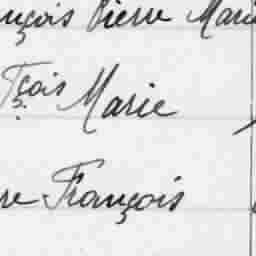 nçois Pierre Marie
Fçois Marie
re François